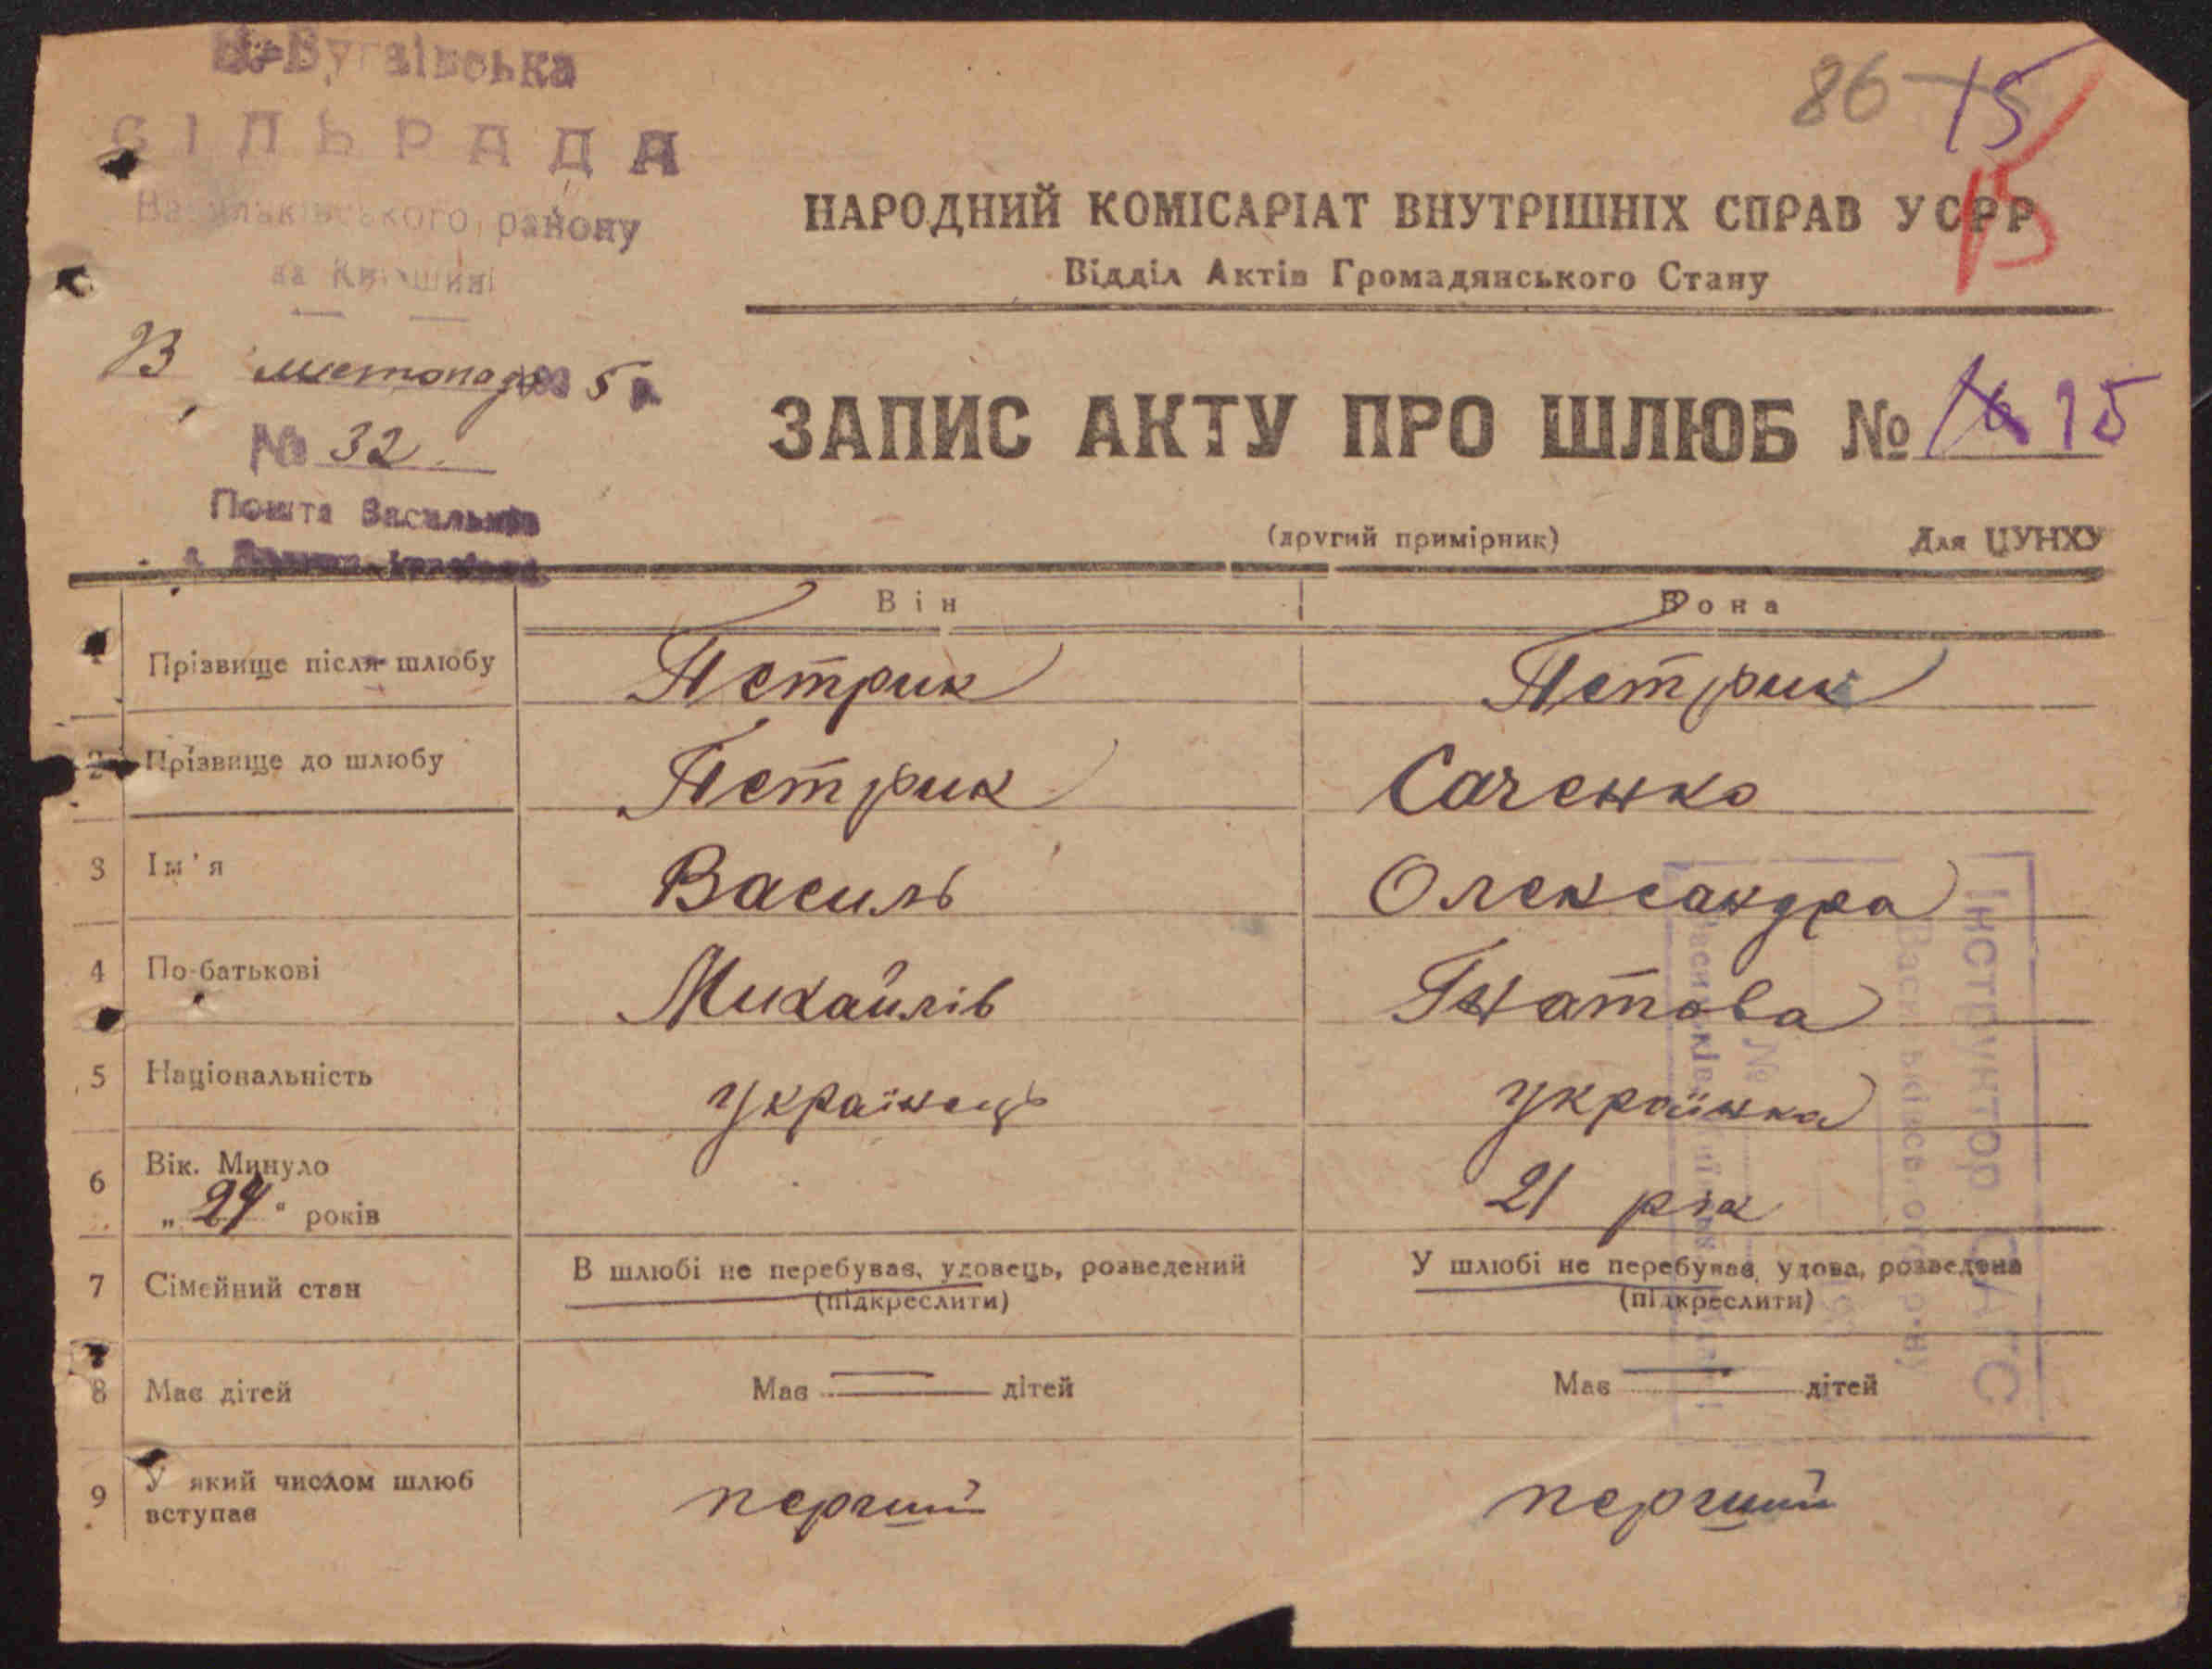 Бугаївська
СІЛЬРАДА
Васильківського району
на Київщині
В листопада 193 5 р.
№ 32.
Пошта Васильків
86 15
15
НАРОДНИЙ КОМІСАРІАТ ВНУТРІШНІХ СПРАВ УСРР
Відділ Актів Громадянського Стану
ЗАПИС АКТУ ПРО ШЛЮБ № 15
(другий примірник) Для ЦУНХУ
Він Вона
1 Прізвище після шлюбу Петрик Петрик
2 Прізвище до шлюбу Петрик Саченко
3 Ім'я Василь Олександра
4 По-батькові Михайлів Гнатова
5 Національність українець українка
6 Вік. Минуло
„24" років 21 рік
7 Сімейний стан В шлюбі не перебував, удовець, розведений У шлюбі не перебуває, удова, розведена
(підкреслити) (підкреслити)
8 Має дітей Має — дітей Має — дітей
9 У який числом шлюб
вступає перший перший
Інструктор ЗАГС
Васильківського р-ну
№